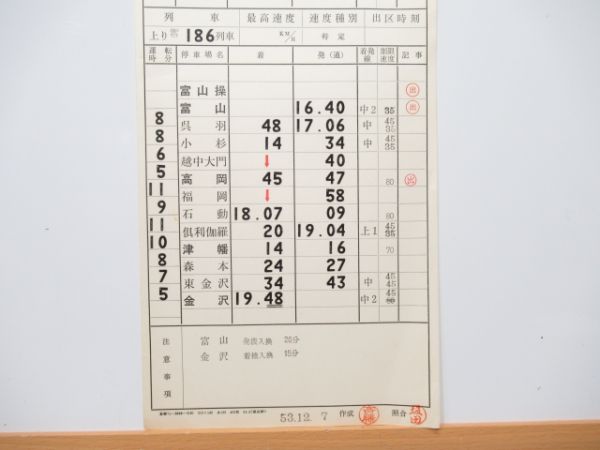 列車 最高速度 速度種別 出区時刻
上り 186列車 KM/H 特定
運転時分 停車場名 着 発(通) 着発線 制限速度 記事
富山操 出
富山 16.40 中2 35 出
8
呉羽 48 17.06 中 45 35
8
小杉 14 34 中 45 35
6
越中大門 ↓ 40
5
高岡 45 47 80 出
11
福岡 ↓ 58
9
石動 18.07 09 80
11
倶利伽羅 20 19.04 上1 45 35
10
津幡 14 16 70
8
森本 24 27
7
東金沢 34 43 中 45 45
5
金沢 19.48 中2 45
注意事項
富山 発後入換 20分
金沢 着後入換 15分
53.12.7 作成 照合